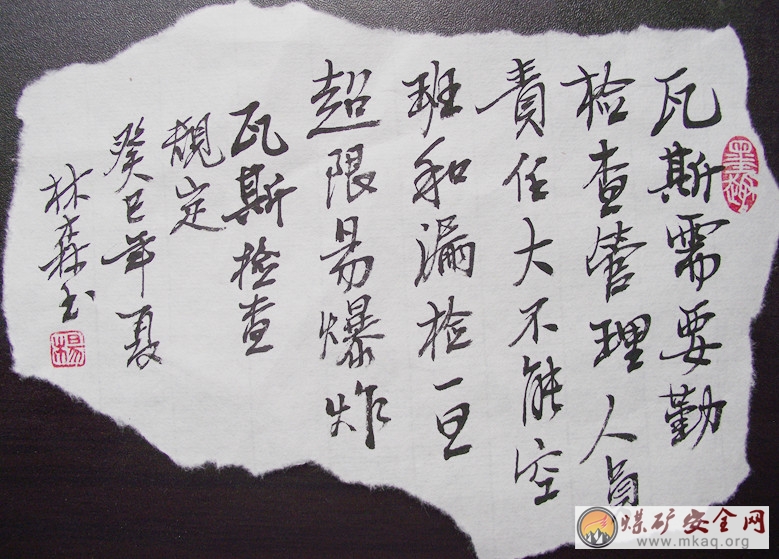 瓦斯需要勤
检查管理人员
責任大不能空
班和漏检一旦
超限易爆炸
瓦斯检查
規定
癸巳年夏
林森书
楊
煤矿安全网
www.mkaq.org